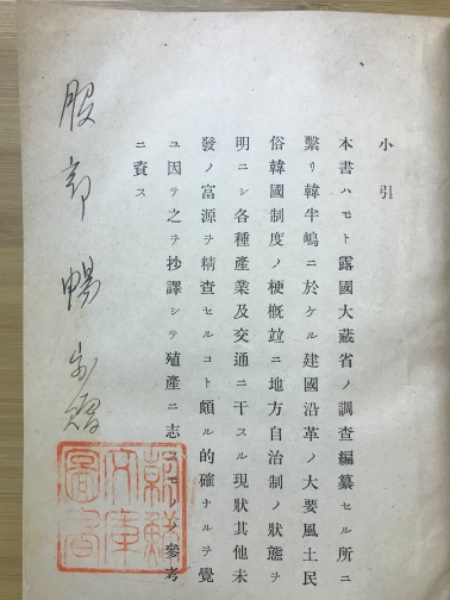 小引
本書ハモト露國大藏省ノ調査編纂セル所ニ
繫リ韓半嶋ニ於ケル建國沿革ノ大要風土民
俗韓國制度ノ梗概竝ニ地方自治制ノ狀態ヲ
明ニシ各種產業及交通ニ干スル現狀其他未
發ノ富源ヲ精查セルコト頗ル的確ナルヲ覺
ユ因テ之ヲ抄譯シテ殖產ニ志スモノノ參考
ニ資ス
服部暢
朝鮮
文庫
圖書